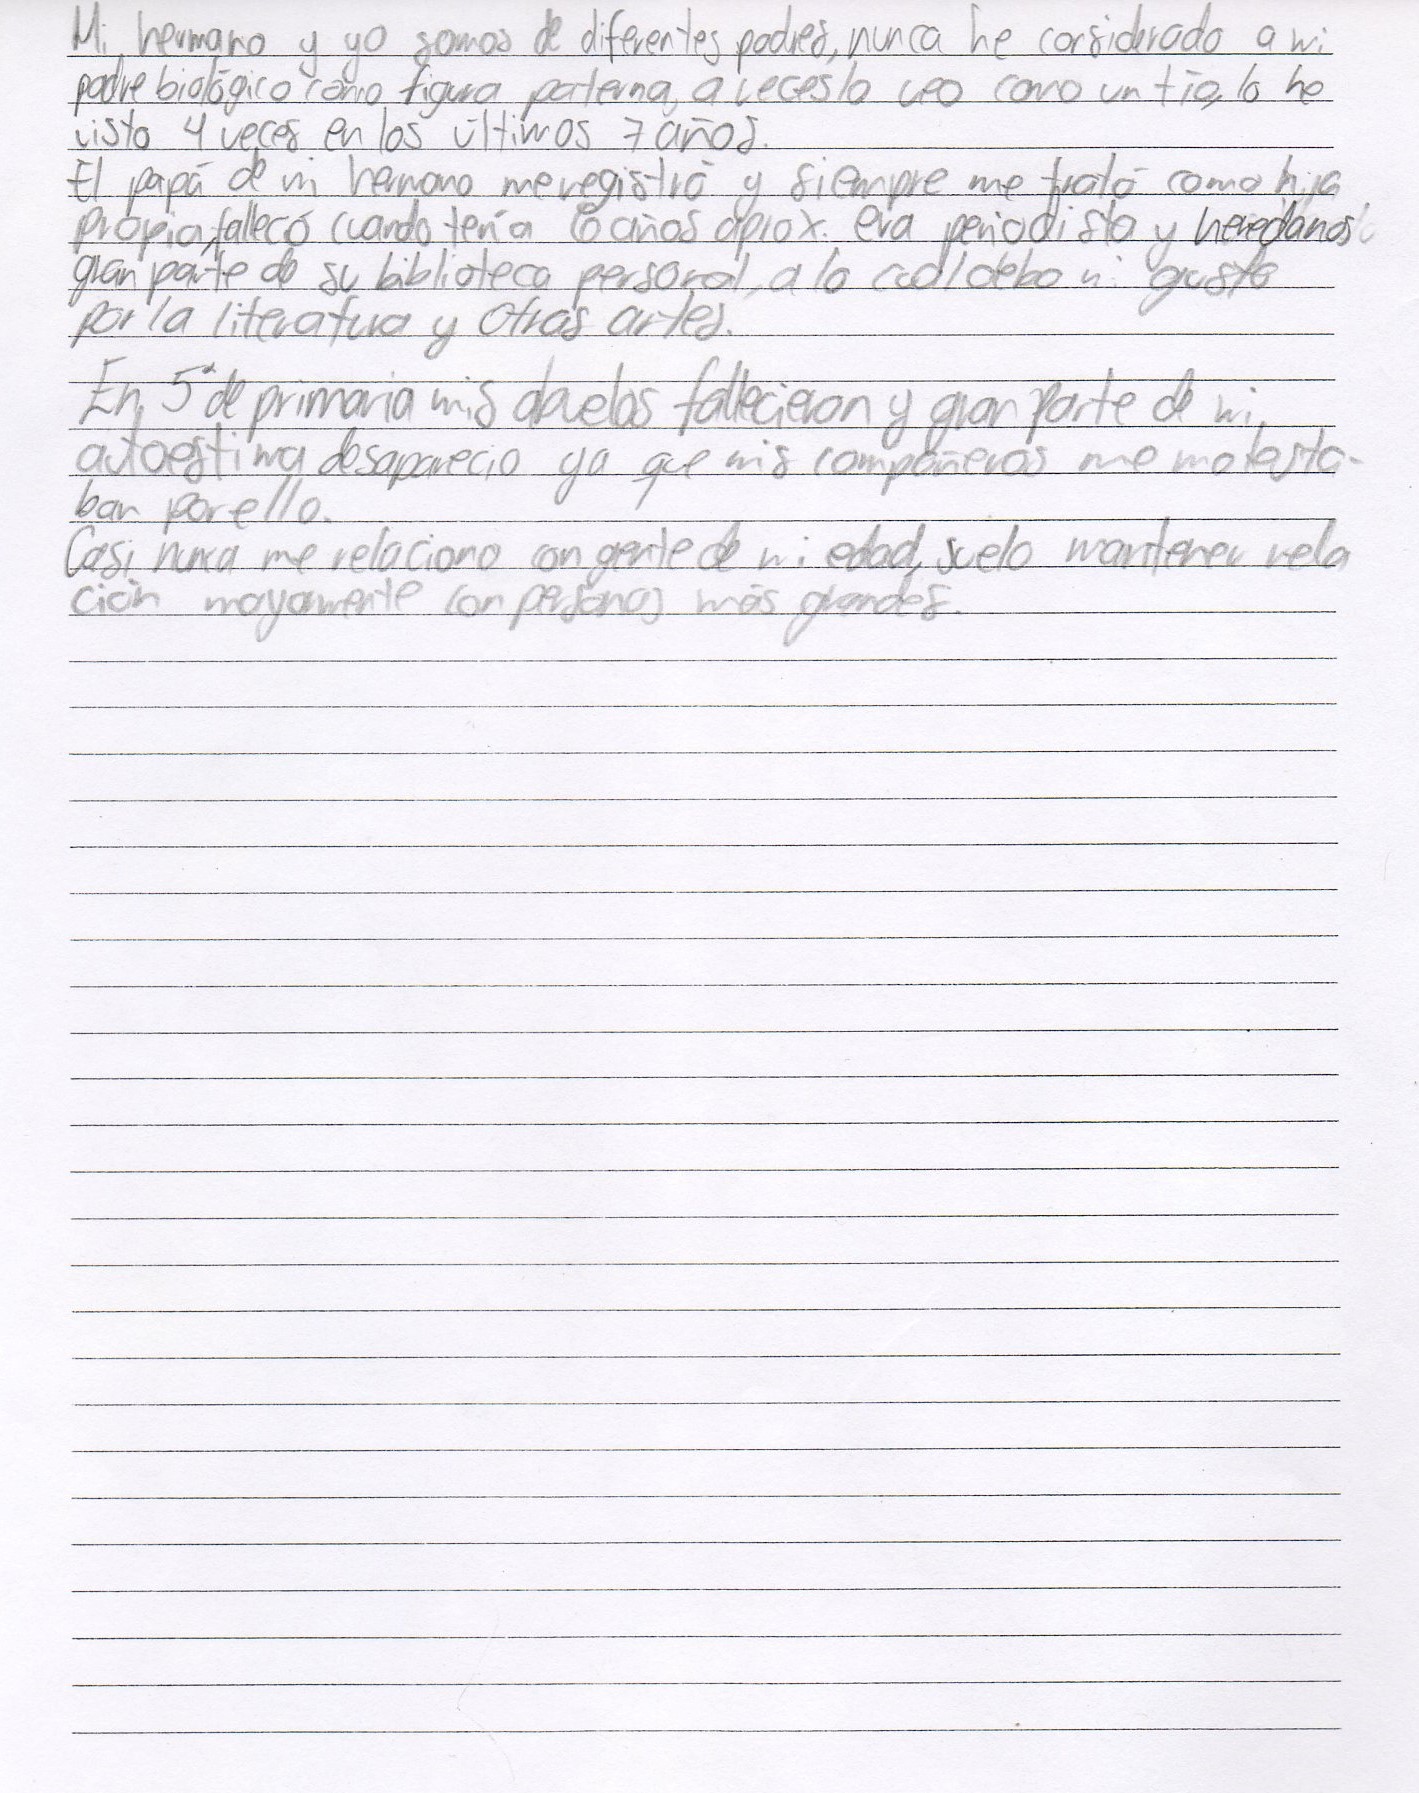 Mi hermano y yo somos de diferentes padres, nunca he considerado a mi
padre biológico como figura paterna, a veces lo veo como un tío, lo he
visto 4 veces en los últimos 7 años.
El papá de mi hermano me registró y siempre me trató como hija
propia, falleció cuando tenía 6 años aprox. era periodista y heredamos
gran parte de su biblioteca personal, a lo cual debo mi gusto
por la literatura y otras artes.
En 5° de primaria mis abuelos fallecieron y gran parte de mi
autoestima desaparecio ya que mis compañeros me molesta-
ban por ello.
Casi nunca me relaciono con gente de mi edad, suelo mantener rela
ción mayormente con personas más grandes.